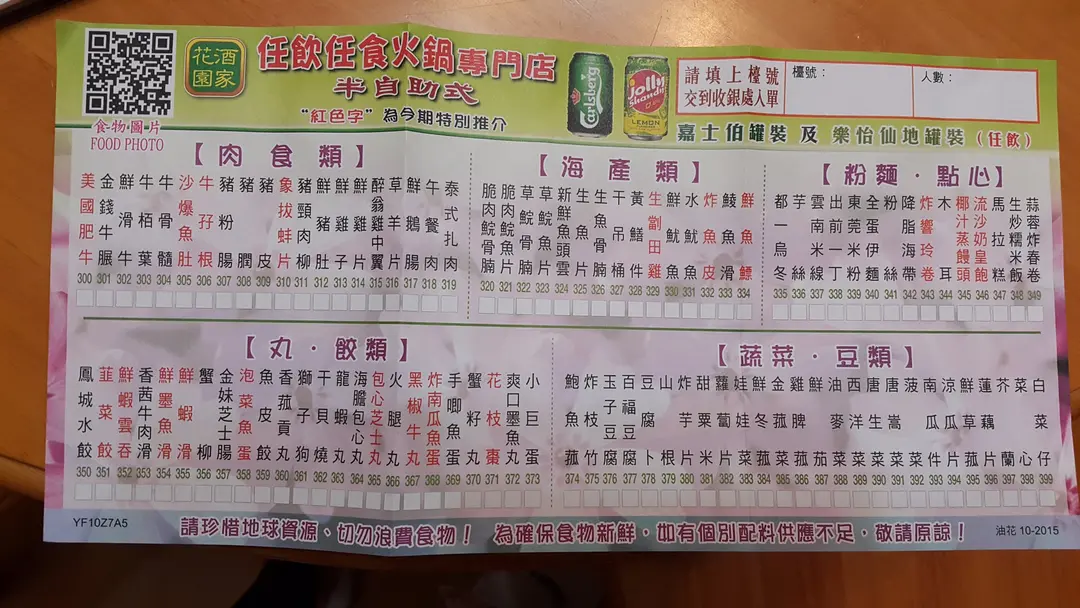 花園酒家
任飲任食火鍋專門店
半自助式
“紅色字”為今期特別推介
食物圖片
FOOD PHOTO
Carlsberg
Jolly Shandy
LEMON
請填上檯號
交到收銀處入單
檯號：
人數：
嘉士伯罐裝 及 樂怡仙地罐裝（任飲）
【肉食類】
美國肥牛 300
金錢牛 301
鮮滑牛 302
牛栢葉 303
牛骨髓 304
沙爆魚肚 305
牛孖根 306
豬粉腸 307
豬潤 308
豬皮 309
象拔蚌片 310
豬頸肉柳 311
鮮豬肚 312
鮮雞子 313
鮮雞片 314
醉翁雞中翼 315
草羊片 316
鮮鵝腸 317
牛餐肉 318
泰式扎肉 319
【海產類】
脆肉鯇骨腩 320
脆肉鯇魚腩 321
草鯇骨腩 322
草鯇魚片 323
新鮮魚頭雲 324
生魚片 325
生魚骨腩 326
干吊桶 327
黃鱔件 328
生劏田雞 329
鮮魷魚 330
水魷魚 331
炸魚皮 332
鯪魚滑 333
鮮魚鰾 334
【粉麵·點心】
都一烏冬 335
芋絲 336
雲南米線 337
出前一丁 338
東莞米粉 339
全蛋伊麵 340
粉絲 341
降脂海帶 342
炸響玲卷 343
木耳 344
椰汁蒸饅頭 345
流沙奶皇飽 346
馬拉糕 347
生炒糯米飯 348
蒜蓉炸春卷 349
【丸·餃類】
鳳城水餃 350
韮菜餃 351
鮮蝦雲吞 352
香茜牛肉滑 353
鮮墨魚滑 354
鮮蝦滑 355
蟹柳 356
金妹芝士腸 357
泡菜魚蛋 358
魚皮餃 359
香菰貢丸 360
獅子狗 361
干貝燒 362
龍蝦丸 363
海膽包心丸 364
包心芝士丸 365
火腿丸 366
黑椒牛丸 367
炸南瓜魚蛋 368
手唧魚蛋 369
蟹丸 370
花枝棗 371
爽口墨魚丸 372
小巨蛋 373
【蔬菜·豆類】
鮑魚菰 374
炸枝竹 375
玉子豆腐 376
百福豆腐 377
豆腐卜 378
山根 379
炸芋片 380
甜粟米 381
蘿蔔片 382
娃娃菜 383
鮮冬菰 384
金菰菜 385
雞脾菰 386
鮮茄 387
油麥菜 388
西洋菜 389
唐生菜 390
唐嵩菜 391
菠菜 392
南瓜件 393
涼瓜片 394
鮮草菰 395
蓮藕片 396
芥蘭 397
菜心 398
白菜仔 399
YF10Z7A5
請珍惜地球資源、切勿浪費食物！ 為確保食物新鮮，如有個別配料供應不足，敬請原諒！
油花 10-2015